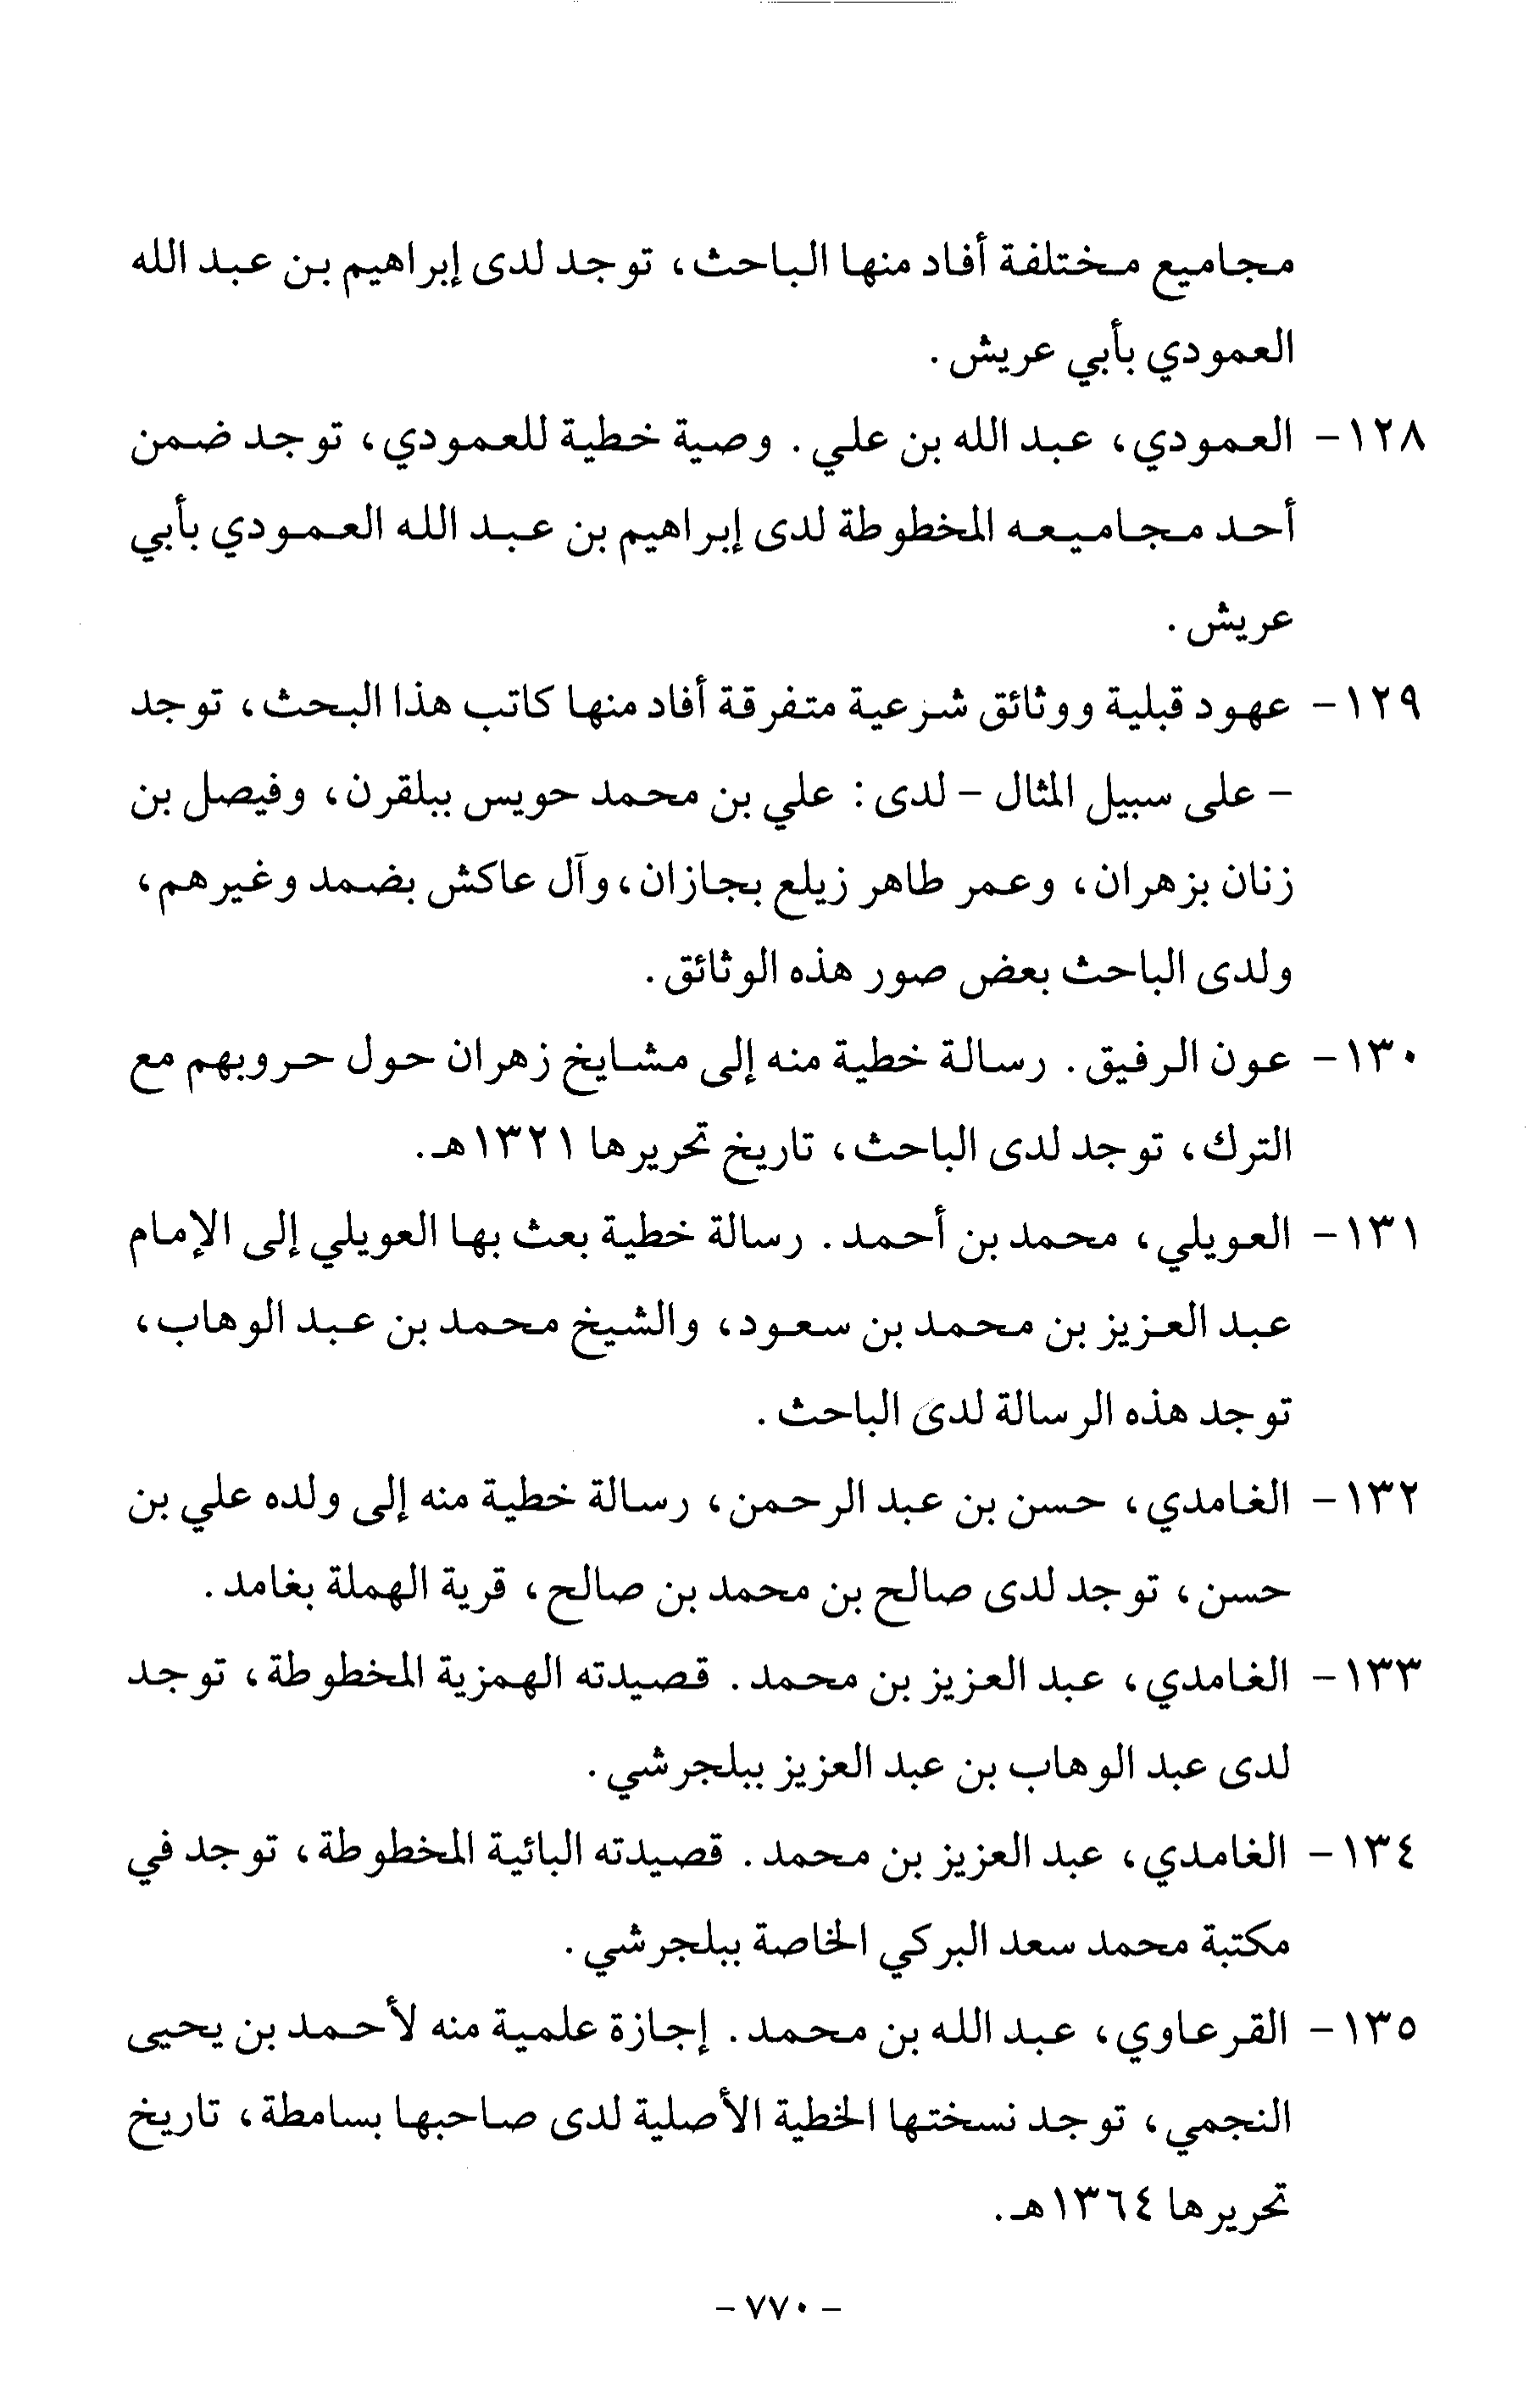 مجاميع مختلفة أفاد منها الباحث، توجد لدى إبراهيم بن عبد الله
العمودي بأبي عريش .
١٢٨- العمودي، عبد الله بن علي . وصية خطية للعمودي، توجد ضمن
أحد مجاميعه المخطوطة لدى إبراهيم بن عبد الله العمودي بأبي
عريش .
١٢٩- عهود قبلية ووثائق شرعية متفرقة أفاد منها كاتب هذا البحث، توجد
- على سبيل المثال - لدى : علي بن محمد حويس ببلقرن، وفيصل بن
زنان بزهران، وعمر طاهر زيلع بجازان، وآل عاكش بضمد وغيرهم،
ولدى الباحث بعض صور هذه الوثائق .
١٣٠- عون الرفيق . رسالة خطية منه إلى مشايخ زهران حول حروبهم مع
الترك، توجد لدى الباحث، تاريخ تحريرها ١٣٢١هـ .
١٣١- العويلي، محمد بن أحمد . رسالة خطية بعث بها العويلي إلى الإمام
عبد العزيز بن محمد بن سعود، والشيخ محمد بن عبد الوهاب،
توجد هذه الرسالة لدى الباحث .
١٣٢- الغامدي، حسن بن عبد الرحمن، رسالة خطية منه إلى ولده علي بن
حسن، توجد لدى صالح بن محمد بن صالح، قرية الهملة بغامد .
١٣٣- الغامدي، عبد العزيز بن محمد . قصيدته الهمزية المخطوطة، توجد
لدى عبد الوهاب بن عبد العزيز ببلجرشي .
١٣٤- الغامدي، عبد العزيز بن محمد . قصيدته البائية المخطوطة، توجد في
مكتبة محمد سعد البركي الخاصة ببلجرشي .
١٣٥- القرعاوي، عبد الله بن محمد . إجازة علمية منه لأحمد بن يحيى
النجمي، توجد نسختها الخطية الأصلية لدى صاحبها بسامطة، تاريخ
تحريرها ١٣٦٤هـ .
- ٧٧٠ -